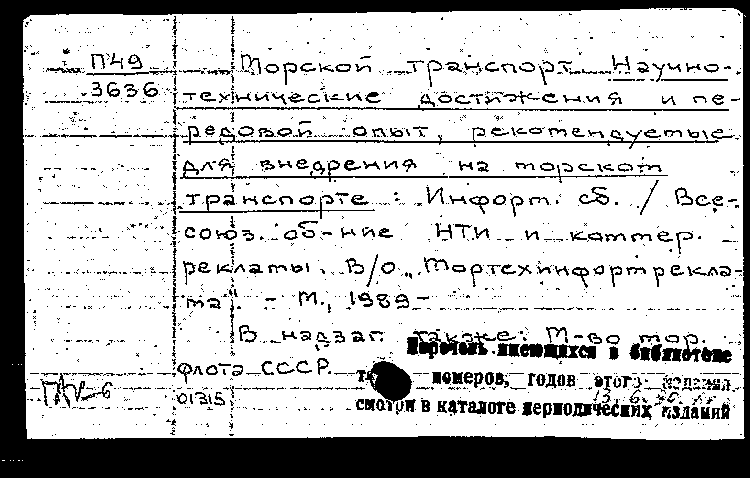 П49
3636
Морской транспорт. Научно-
технические достижения и пе-
редовой опыт, рекомендуемые
для внедрения на морском
транспорте : Информ. сб. / Все-
союз. об-ние НТИ и коммер.
рекламы. В/О „Мортехинформрекла-
ма“. - М., 1989 -
В надзаг. также: М-во мор.
флота СССР.
Перечень имеющихся в библиотеке
номеров, годов этого издания
смотри в каталоге периодических изданий
01315